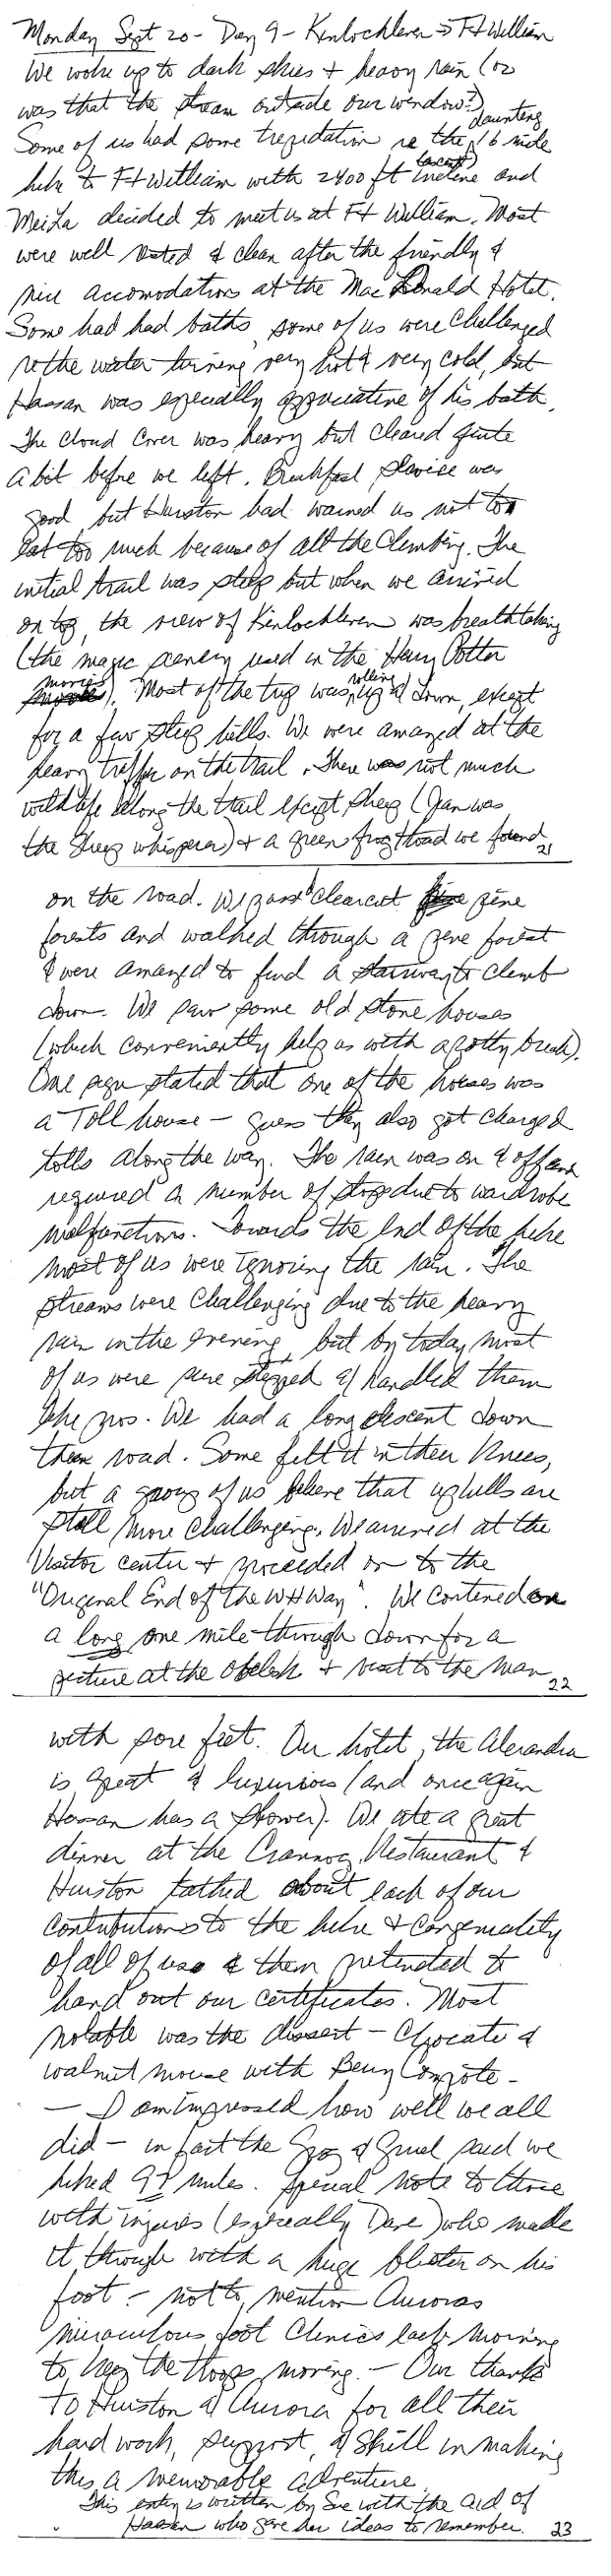 Monday Sept 20 - Day 9 - Kinlochleven → Ft William
We woke up to dark skies + heavy rain (or
was that the stream outside our window?)
Some of us had some trepidation re the daunting 16 mile
hike to Ft William with 2400 ft incline (ascent) and
MeiLa decided to meet us at Ft William. Most
were well rested & clean after the friendly &
nice accomodations at the MacDonald Hotel.
Some had had baths, some of us were challenged
re the water turning very hot & very cold, but
Hassan was especially appreciative of his bath.
The cloud cover was heavy but cleared quite
a bit before we left. Breakfast service was
good, but Huiston had warned us not to
eat too much because of all the climbing. The
initial trail was steep but when we arrived
on top, the view of Kinlochleven was breathtaking
(the magic scenery used in the Harry Potter
movies). Most of the trip was rolling up & down, except
for a few steep hills. We were amazed at the
heavy traffic on the trail. There was not much
wildlife along the trail except sheep (Jan was
the sheep whisperer) + a green frog/toad we found
21
on the road. We passed clearcut pine
forests and walked through a pine forest
& were amazed to find a stairway to climb
down. We saw some old stone houses
(which conveniently help us with a potty break).
One sign stated that one of the houses was
a Toll house - guess they also got charged
tolls along the way. The rain was on & off and
required a number of stops due to wardrobe
malfunctions. Towards the end of the hike
most of us were ignoring the rain. The
streams were challenging due to the heavy
rain in the evening, but by today most
of us were sure stepped & handled them
like pros. We had a long descent down
the road. Some felt it in their knees,
but a group of us believe that uphills are
still more challenging. We arrived at the
Visitor center + proceeded on to the
"Original End of the WHWay". We contined on
a long one mile through down for a
picture at the obelisk + visit to the man
22
with sore feet. Our hotel, the Alexandra
is great & luxurious (and once again
Hassan has a shower). We ate a great
dinner at the Crannog Restaurant &
Huiston talked about each of our
contributions to the hike + congeniality
of all of us & then pretended to
hand out our certificates. Most
notable was the dessert - Chocate &
walnut mouse with Berry Compote -
- I am impressed how well we all
did - in fact the Grog & Gruel said we
hiked 97 miles. Special note to those
with injuries (especially Dave) who made
it through with a huge blister on his
foot - not to mention Auroras
miraculous foot Clinics each morning
to keep the troops moving. - Our thanks
to Huiston & Aurora for all their
hard work, support, & skill in making
this a memorable adventure.
This entry is written by Sue with the aid of
Hassan who gave her ideas to remember.
23